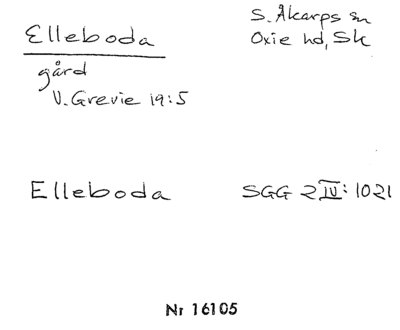 Elleboda
S. Åkarps sn
Oxie hd, Sk
gård
V. Grevie 19:5
Elleboda
SGG 2 IV: 1021
Nr 16105